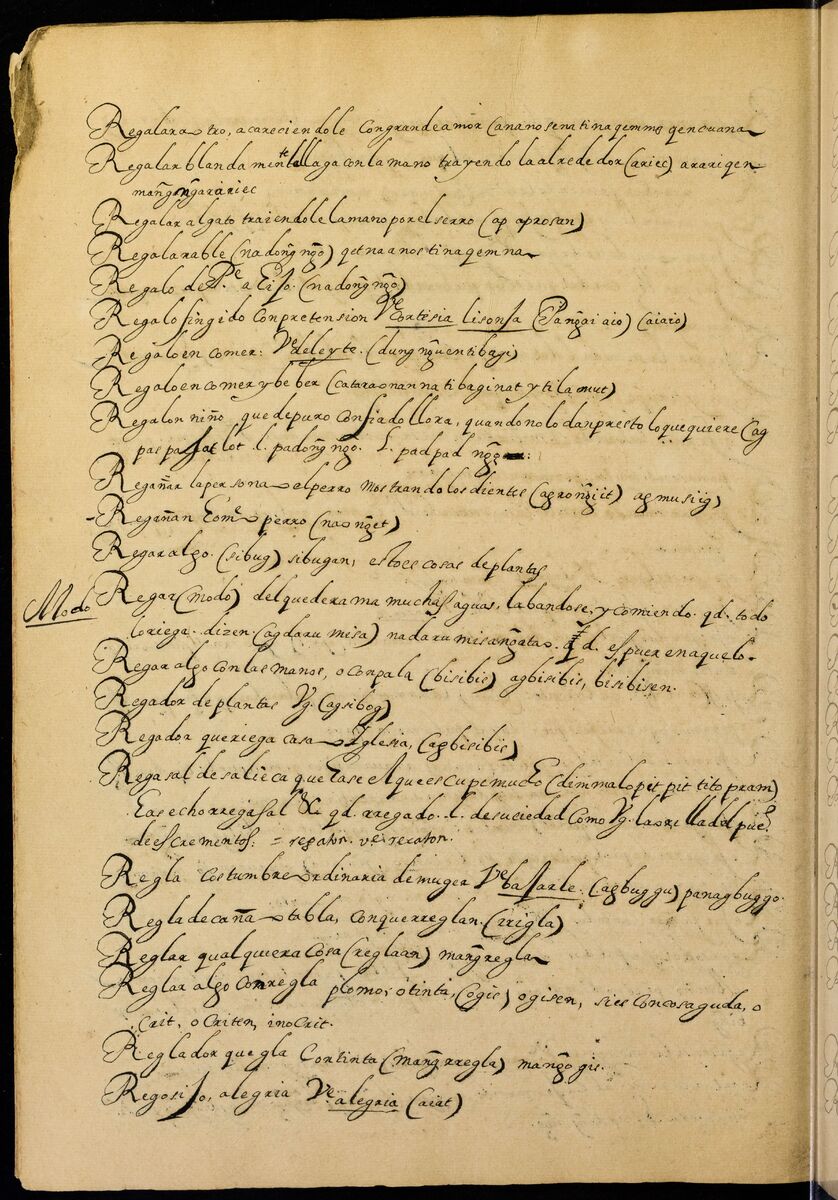 Regalara otro, acareciendole con grande amor (anano sena tinagemmo qencuana
Regalar blandamente llaga con la mano trayendola alrededor (ariec) arariqen
mang̃ong̃arariec
Regalar al gato traiendole la mano por el serro (ap aprosan)
Regalarable (nadong̃ng̃o) qetnaanostinaqemna
Regalo de Pe. a Hijo. (nadong̃ng̃o)
Regalo fingido con pretension Ve. cortesia lisonja (Pang̃aiaio) (aiaio)
Regalo en comer: Ve. deleyte. (dung ng̃uentibagi)
Regalo en comer y beber (cataraonannatibaginat ytilamut)
Regalon niño, que de puro confiado llora, quando no lo dan presto lo que quiere (ag
paspasatlot l. padong̃ng̃o. l. padpad ng̃o:
Regañar la persona o el perro mostrando los dientes (agrong̃iit) agmusiig,
Regañan home o perro (naong̃et)
Regar algo. (sibug) sibugan, esto es cosas de plantas
Modo Regar (modo) del que derama muchas aguas, labandose, y comiendo. qd. todo
lo riega. dizen (agdaru misa) nadarumisang̃atao. q. d. es puer en aquelo.
Regar algo con las manos, o con pala (bisibis) agbisibis, bisibisen.
Regador de plantas Vg. (agsibog)
Regador que riega casa o Iglesia, (agbisibis)
Regasal de saliba que hase el que escupe mucho (dimmalopitpit tito pram)
Has echo rregasal &c qd. rregado. l. de suciedad como Vg. la orilla del pueo.
de escrementos: = regaton. ve. recaton.
Regla costumbre ordinaria de muger Ve. bajarle. (agbuggu) panagbuggo.
Regla de caña o tabla, con que rreglan. (irigla)
Reglar qualquiera cosa (reglaan) mang̃regla
Reglar algo con regla plomo, o tinta, (ogis) ogisen, si es con cosa guda, o
crit, o criten, inocrit.
Reglador que gla con tinta (mang̃rregla) mang̃ogis.
Regosijo, alegria Ve. alegria (aiat)